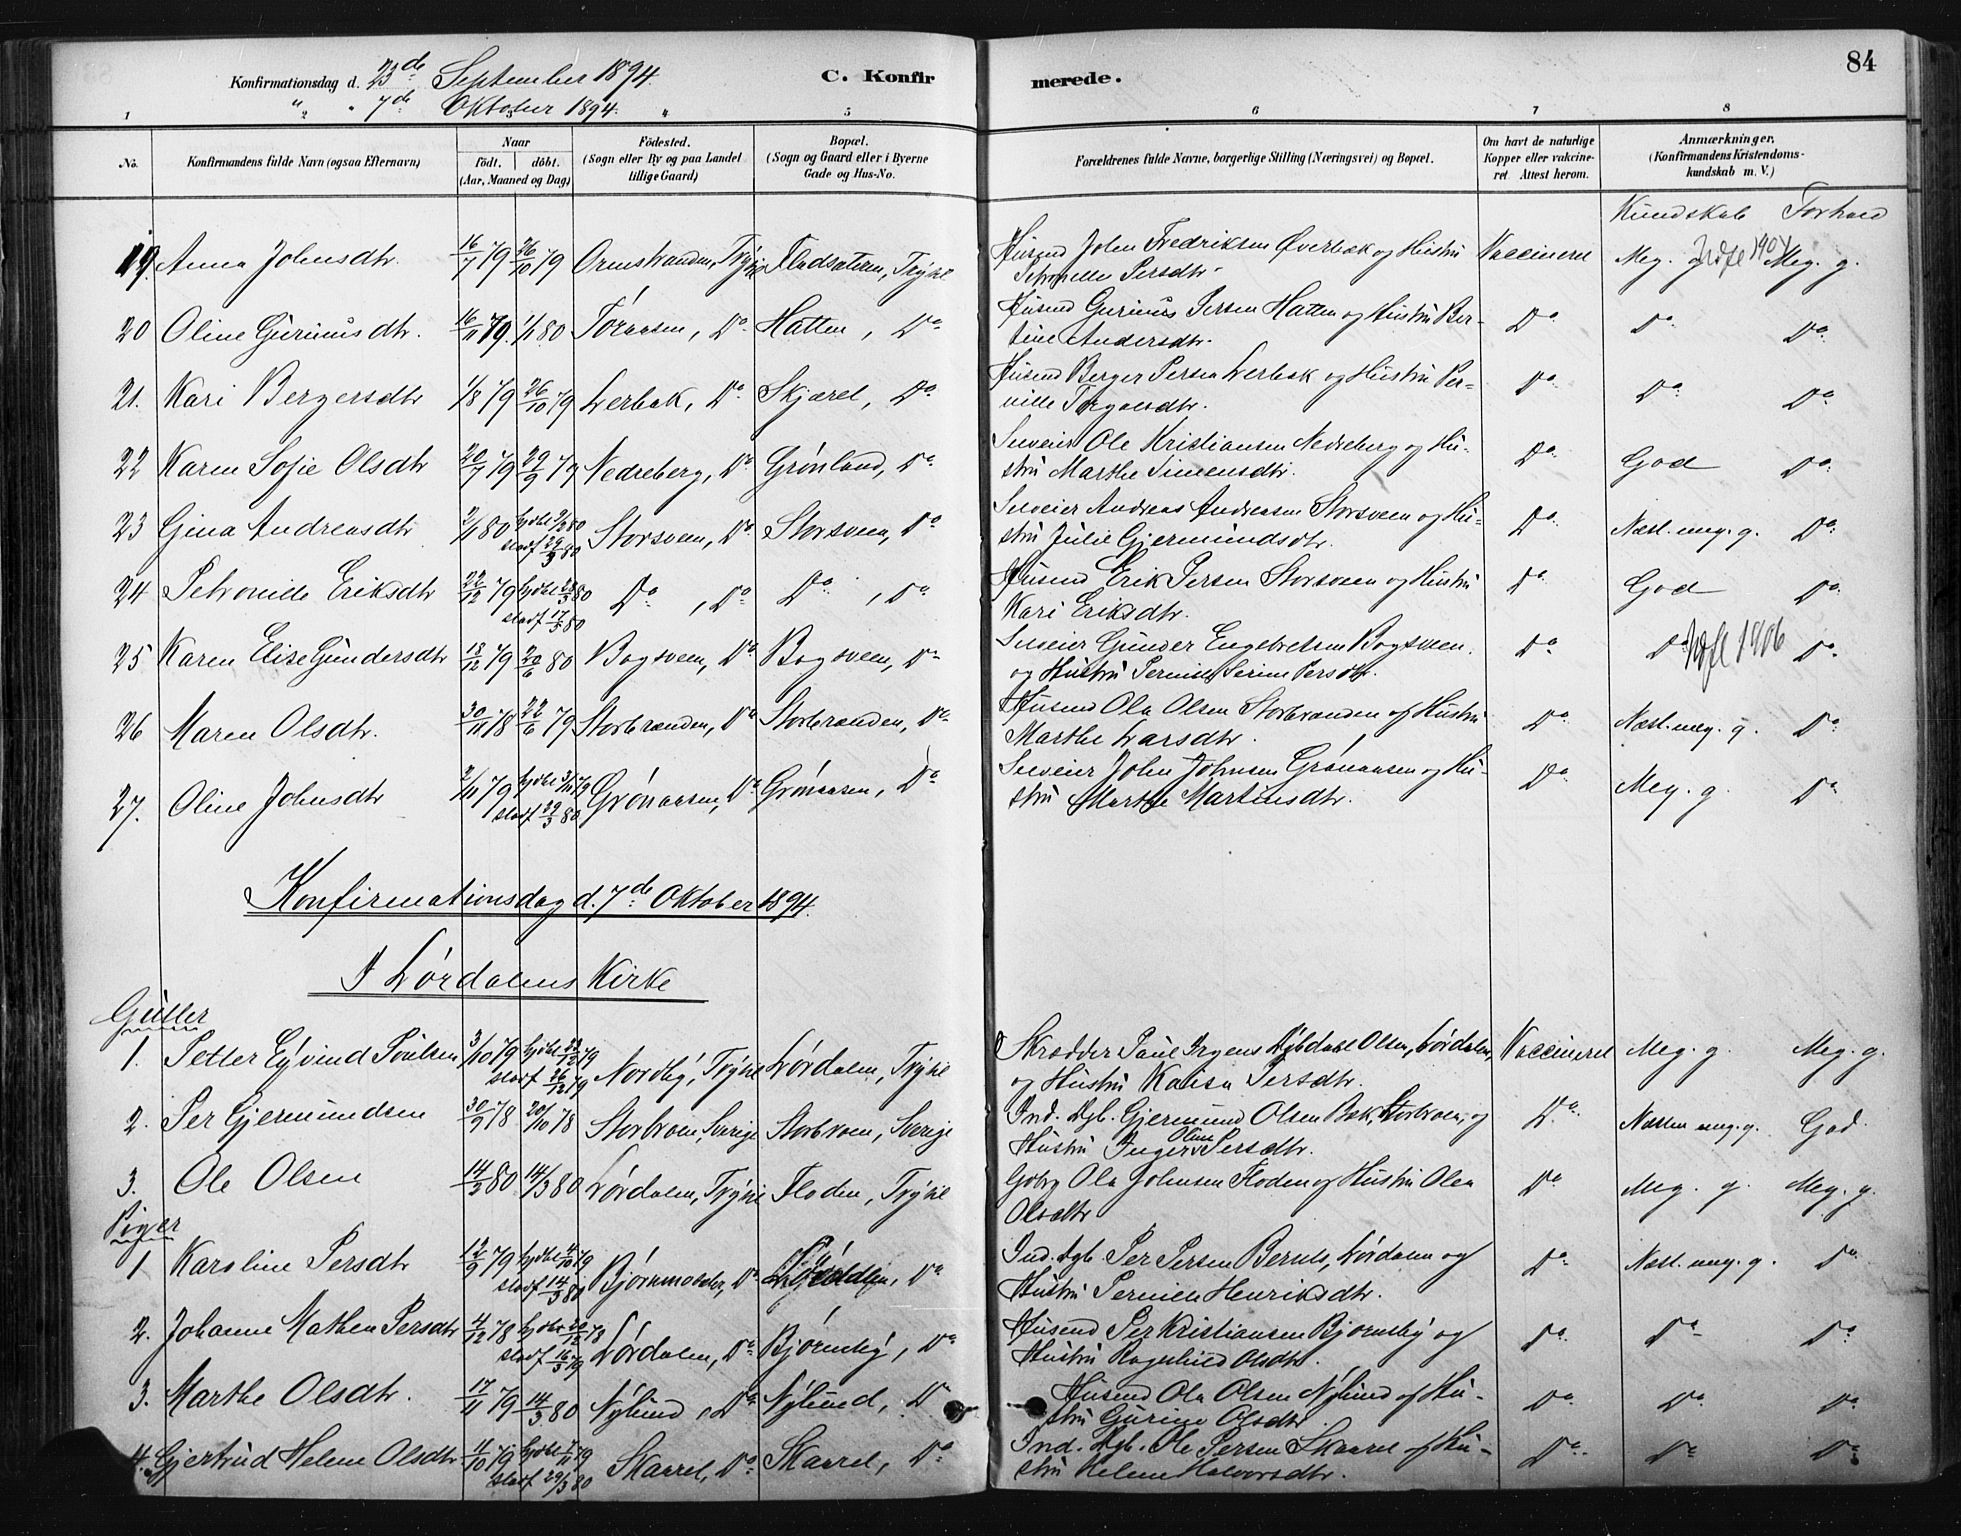 84
Konfirmationsdag d. 23de September 1894. C. Konfirmerede.
" " 7de Oktober 1894. "
1 2 3 4 5 6 7 8
No. Konfirmandens fulde Navn (ogsaa Efternavn) Naar født. døbt. (Aar, Maaned og Dag) Fødested. (Sogn eller By og paa Landet tillige Gaard) Bopæl. (Sogn og Gaard eller i Byerne Gade og Hus-No. Forældrenes fulde Navne, borgerlige Stilling (Næringsvei) og Bopæl. Om havt de naturlige Kopper eller vaccineret. Attest herom. Anmærkninger. (Konfirmandens Kristendomskundskab m. V.)
Kundskab Forhold
19. Anna Johnsdtr. 16/7 79 26/10 79 Ormstranden, Trysil Fladsæteren, Trysil Husmd John Fredriksen Øverbæk og Hustru Petronelle Persdtr. Vaccineret Meg. g. Meg. g.
20 Oline Guriniusdtr. 16/11 79 1/1 80 Töraasen, Do Hatten, Do Husmd Gurinius Persen Hatten og Hustru Bertine Andersdtr. Do Do Do
21. Kari Bergersdtr 1/8 79 26/10 79 Lerbæk, Do Skjærel, Do Husmd Berger Persen Lerbæk og Hustru Pernille Torgalsdtr. Do Do Do
22 Karen Sofie Olsdtr 20/7 79 29/9 79 Nedreberg, Do Grønland, Do Selveier Ole Kristiansen Nedreberg og Hustru Marthe Simensdtr. Do God Do
23 Gina Andreasdtr 2/1 80 hjdbt 2/2 80 stadf 29/3 80 Storsveen, Do Storsveen, Do Selveier Andreas Andreasen Storsveen og Hustru Julie Gjermundsdtr. Do Næst. meg. g. Do
24 Petronille Eriksdtr 22/12 79 hjdbt 28/3 80 stadf 17/5 80 Do, Do Do, Do Husmd Erik Persen Storsveen og Hustru Kari Eriksdtr. Do God Do
25 Karen Elise Gundersdtr 18/12 79 20/6 80 Bogsveen, Do Bogsveen, Do Selveier Gunder Engebretsen Bogsveen og Hustru Pernille Serine Persdtr. Do Do Indfl 1906 Do
26 Maren Olsdtr. 30/11 78 22/6 79 Storbrænden, Do Storbrænden, Do Husmd Ola Olsen Storbrænden og Hustru Marthe Larsdtr. Do Næst. meg. g. Do
27. Oline Johnsdtr 2/10 79 hjdbt 3/10 79 stadf 29/3 80 Grønaasen, Do Grønaasen, Do Selveier John Johnsen Grønaasen og Hustru Marthe Martinsdtr. Do Meg. g. Do
Konfirmationsdag d. 7de Oktober 1894.
I Lørdalens Kirke
Gutter
1. Petter Eyvind Poulsen 3/10 79 stadf 26/12 79 Nordby, Trysil Lørdalen, Trysil Skrædder Paul Olsen, Lørdalen, og Hustru Kaisa Persdtr. Vaccineret Meg. g. Meg. g.
2. Per Gjermundsen 30/9 78 20/10 78 Storbroen, Sverige Storbroen, Sverige Ind. Dgb. Gjermund Olsen Bæk, Storbroen, og Hustru Inger Oline Persdtr. Do Næsten meg. g. God
3. Ole Olsen 14/2 80 14/3 80 Lørdalen, Trysil Floden, Trysil Gbbr Ola Johnsen Floden og Hustru Olea Olsdtr Do Meg. g. Meg. g.
Piger
1 Karoline Persdtr 12/9 79 stadf 14/3 80 Bjørnmosen, Do Lørdalen, Do Ind. Dgb. Per Persen Berntz, Lørdalen og Hustru Pernille Henriksdtr. Do Næst. meg. g. Do
2. Johanne Mathea Persdtr 4/12 78 hjdbt 20/12 78 stadf 16/3 79 Lørdalen, Do Bjørneby, Do Husmd Per Kristiansen Bjørneby og Hustru Ragnhild Olsdtr. Do Do Do
3. Marthe Olsdtr. 17/11 79 14/3 80 Nylund, Do Nylund, Do Husmd Ola Olsen Nylund og Hustru Gurine Olsdtr. Do Do Do
4. Gjertrud Helene Olsdtr 11/10 79 stadf 29/3 80 Skaarel, Do Skaarel, Do Ind. Dgb. Ole Persen Skaarel og Hustru Helene Halvorsdtr. Do Do Do